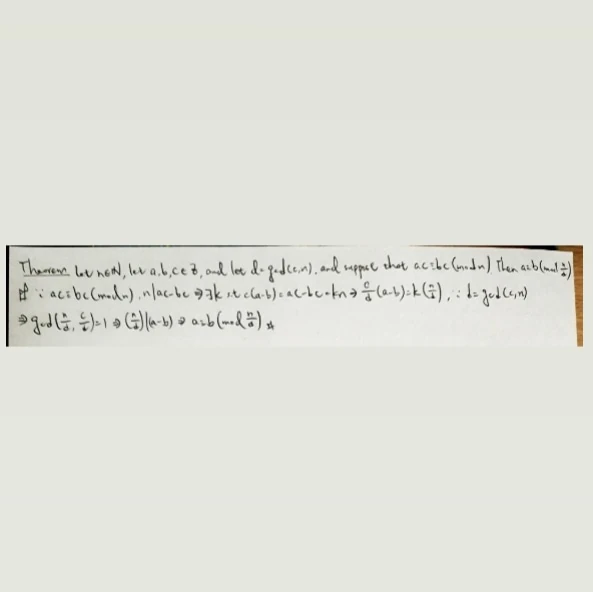 Theorem Let n∈ℕ, let a,b,c∈ℤ, and let d=gcd(c,n), and suppose that ac≡bc(mod n) Then a≡b(mod n/d)
pf ∵ ac≡bc(mod n), n|ac-bc ⇒ ∃k s.t c(a-b)=ac-bc=kn ⇒ c/d(a-b)=k(n/d), ∵ d=gcd(c,n)
⇒ gcd(n/d, c/d)=1 ⇒ (n/d)|(a-b) ⇒ a≡b(mod n/d) ☆